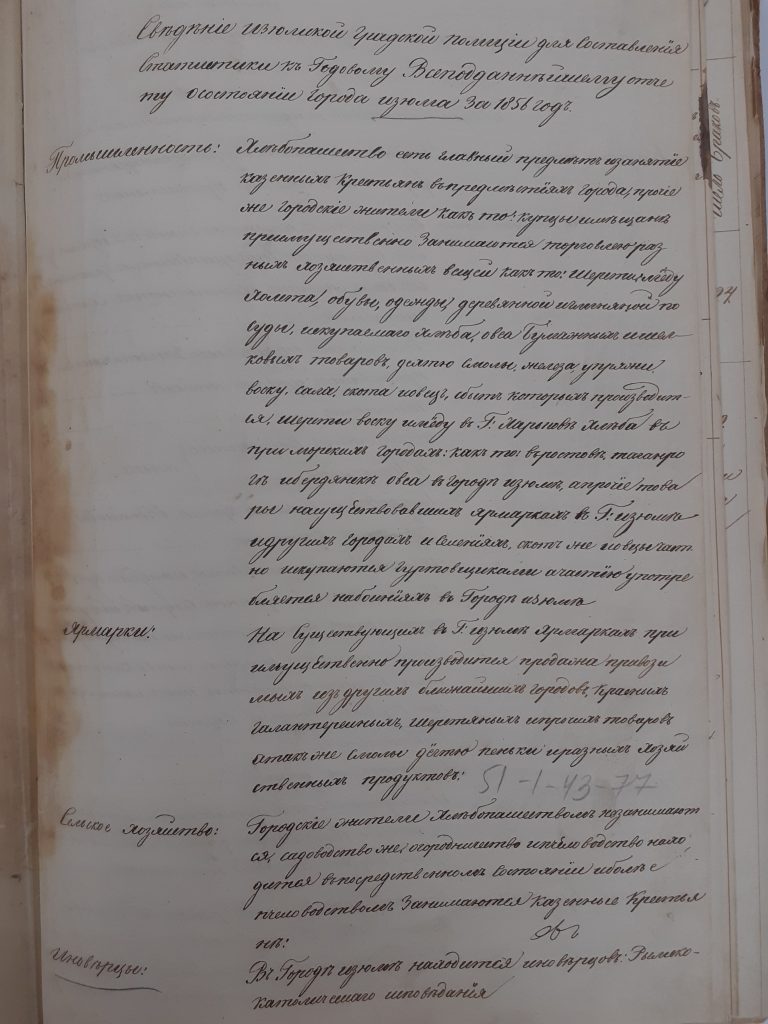 Свѣдѣніе Изюмской Градской Полиціи для Составленія
Статистики къ Годовому Всеподданнѣйшему отче
ту о состояніи Города Изюма за 1856 годъ.
Промышленность:
Хлѣбопашество есть главный предмѣтъ и занятіе
казенныхъ Крестьянъ въ предмѣстіяхъ города, прочіе
же городскіе жители какъ то: купцы и мѣщанѣ
преимущественно Занимаются торговлею раз
ныхъ хозяственныхъ вещей какъ то: шерсти, мѣду
Холста, обувы, одежды, деревянной и глиняной по
суды, искупаемаго хлѣба, овса Бумажныхъ и шел
ковыхъ товаровъ, дегтю смолы, железа упряжи,
воску, сала, скота и овецъ, сбытъ которыхъ производит
ся, шерсти воску и мѣду въ Г: Харьковѣ Хлѣба въ
приморскихъ городахъ: какъ то: въ ростовѣ, таганро
гѣ и бердянскѣ овса въ городѣ изюмѣ, а прочіе това
ры на существовавшихъ ярмаркахъ въ Г: изюмѣ
и другихъ городахъ и селеніяхъ, скотъ же и овцы част
но искупаются гуртовщиками а частію употре
бляется на бойняхъ въ Городѣ изюмѣ
Ярмарки:
На Существующихъ въ Г: изюмѣ Ярмаркахъ при
имущественно производится продажа привози
мыхъ изъ другихъ ближайшихъ городовъ, Красныхъ
галантерейныхъ, шерстяныхъ и прочихъ товаровъ
а такъ же смолы дегтю пеньки и разныхъ хозяй
ственныхъ продуктовъ:
51-1-43-77
Сельское хозяйство:
Городскіе жители Хлѣбопашествомъ незанимают
ся, садоводство же, огородничество и пчеловодство нахо
дится въ посредственномъ состояніи и болѣе
пчеловодствомъ Занимаются казенные Крестья
нѣ:
Иновѣрцы:
Въ Городѣ изюмѣ находится иновѣрцовъ: Римско-
католическаго исповѣданія